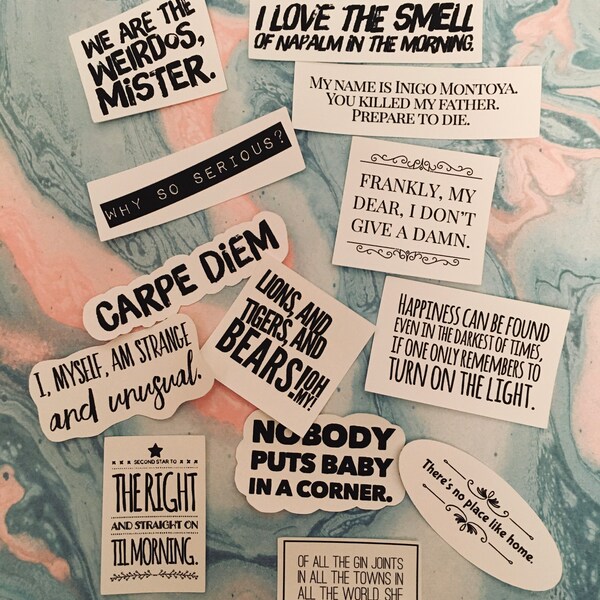 WE ARE THE
WEIRDOS,
MISTER.
I LOVE THE SMELL
OF NAPALM IN THE MORNING.
MY NAME IS INIGO MONTOYA.
YOU KILLED MY FATHER.
PREPARE TO DIE.
WHY SO SERIOUS?
FRANKLY, MY
DEAR, I DON'T
GIVE A DAMN.
CARPE DiEM
LIONS, AND
TIGERS, AND
BEARS! OH
MY!
HAPPINESS CAN BE FOUND
EVEN IN THE DARKEST OF TIMES,
IF ONE ONLY REMEMBERS TO
TURN ON THE LIGHT.
I, MYSELF, AM STRANGE
and unusual.
NOBODY
PUTS BABY
IN A CORNER.
SECOND STAR TO
THE RIGHT
AND STRAIGHT ON
TIL MORNING.
There's no place like home.
OF ALL THE GIN JOINTS
IN ALL THE TOWNS IN
ALL THE WORLD, SHE